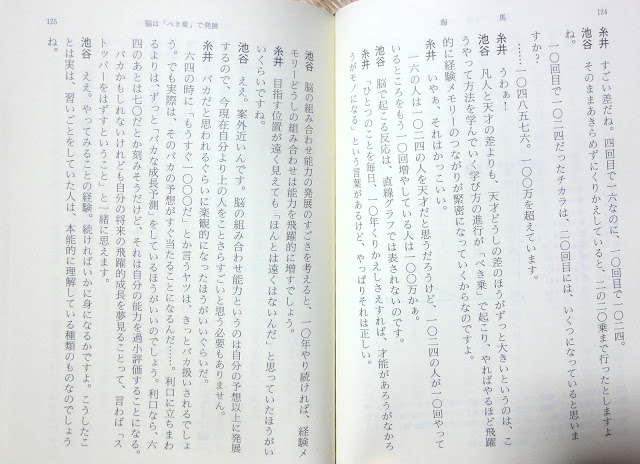 124
海馬
糸井　すごい差だね。四回目で一六なのに、一〇回目で一〇二四。
池谷　そのままあきらめずにくりかえしていると、二の二〇乗まで行ったとしますよ
ね。一〇回目で一〇二四だったチカラは、二〇回目には、いくつになっていると思いま
すか？
……一〇四八五七六。一〇〇万を超えています。
糸井　うわぁ！
池谷　凡人と天才の差よりも、天才どうしの差のほうがずっと大きいというのは、こ
うやって方法を学んでいく学び方の進行が「べき乗」で起こり、やればやるほど飛躍
的に経験メモリーのつながりが緊密になっていくからなのですよ。
糸井　いやぁ、それはかっこいい。
一六の人は一〇二四の人を天才だと思うだろうけど、一〇二四の人が一〇回やって
いるところをもう一〇回増やしている人は一〇〇万かぁ。
池谷　脳で起こる反応は、直線グラフでは表されないのです。
糸井　「ひとつのことを毎日、一〇年くりかえしさえすれば、才能があろうがなかろ
うがモノになる」という言葉があるけど、やっぱりそれは正しい。
125
脳は「べき乗」で発展
池谷　脳の組み合わせ能力の発展のすごさを考えると、一〇年やり続ければ、経験メ
モリーどうしの組み合わせは能力を飛躍的に増すでしょう。
糸井　目指す位置が遠く見えても「ほんとは遠くはないんだ」と思っていたほうがい
いくらいですね。
池谷　ええ。案外近いんです。脳の組み合わせ能力というのは自分の予想以上に発展
するので、今現在自分より上の人をことさらすごいと思う必要もありません。
糸井　バカだと思われるぐらいに楽観的になったほうがいいぐらいだ。
六四の時に「もうすぐ一〇〇〇だ」とか言うヤツは、きっとバカ扱いされるでしょ
う。でも実際は、そのバカの予想がすぐ当たることになるんだ……。利口に立ちまわ
るよりは、ずっと「バカな成長予測」をしているほうがいいのでしょう。利口なら、六
四のあとは七〇だとか刻みそうだけど、それは自分の能力を過小評価することになる。
バカかもしれないけれども自分の将来の飛躍的成長を夢見ることって、言わば「ス
トッパーをはずすということ」と一緒に思えます。
池谷　ええ。やってみることの経験。続ければいかに身になるかですよ。こうしたこ
とは実は、習いごとをしていた人は、本能的に理解している種類のものなのでしょう
ね。